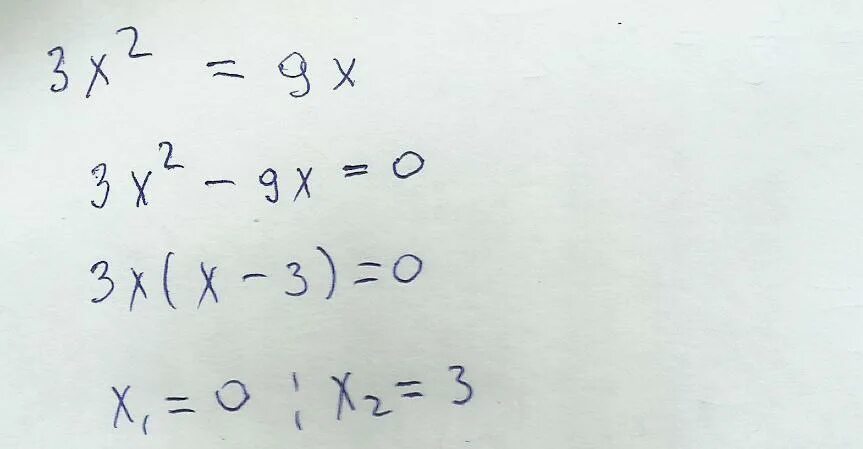 3x² = 9x
3x² - 9x = 0
3x(x - 3) = 0
x₁ = 0 ; x₂ = 3